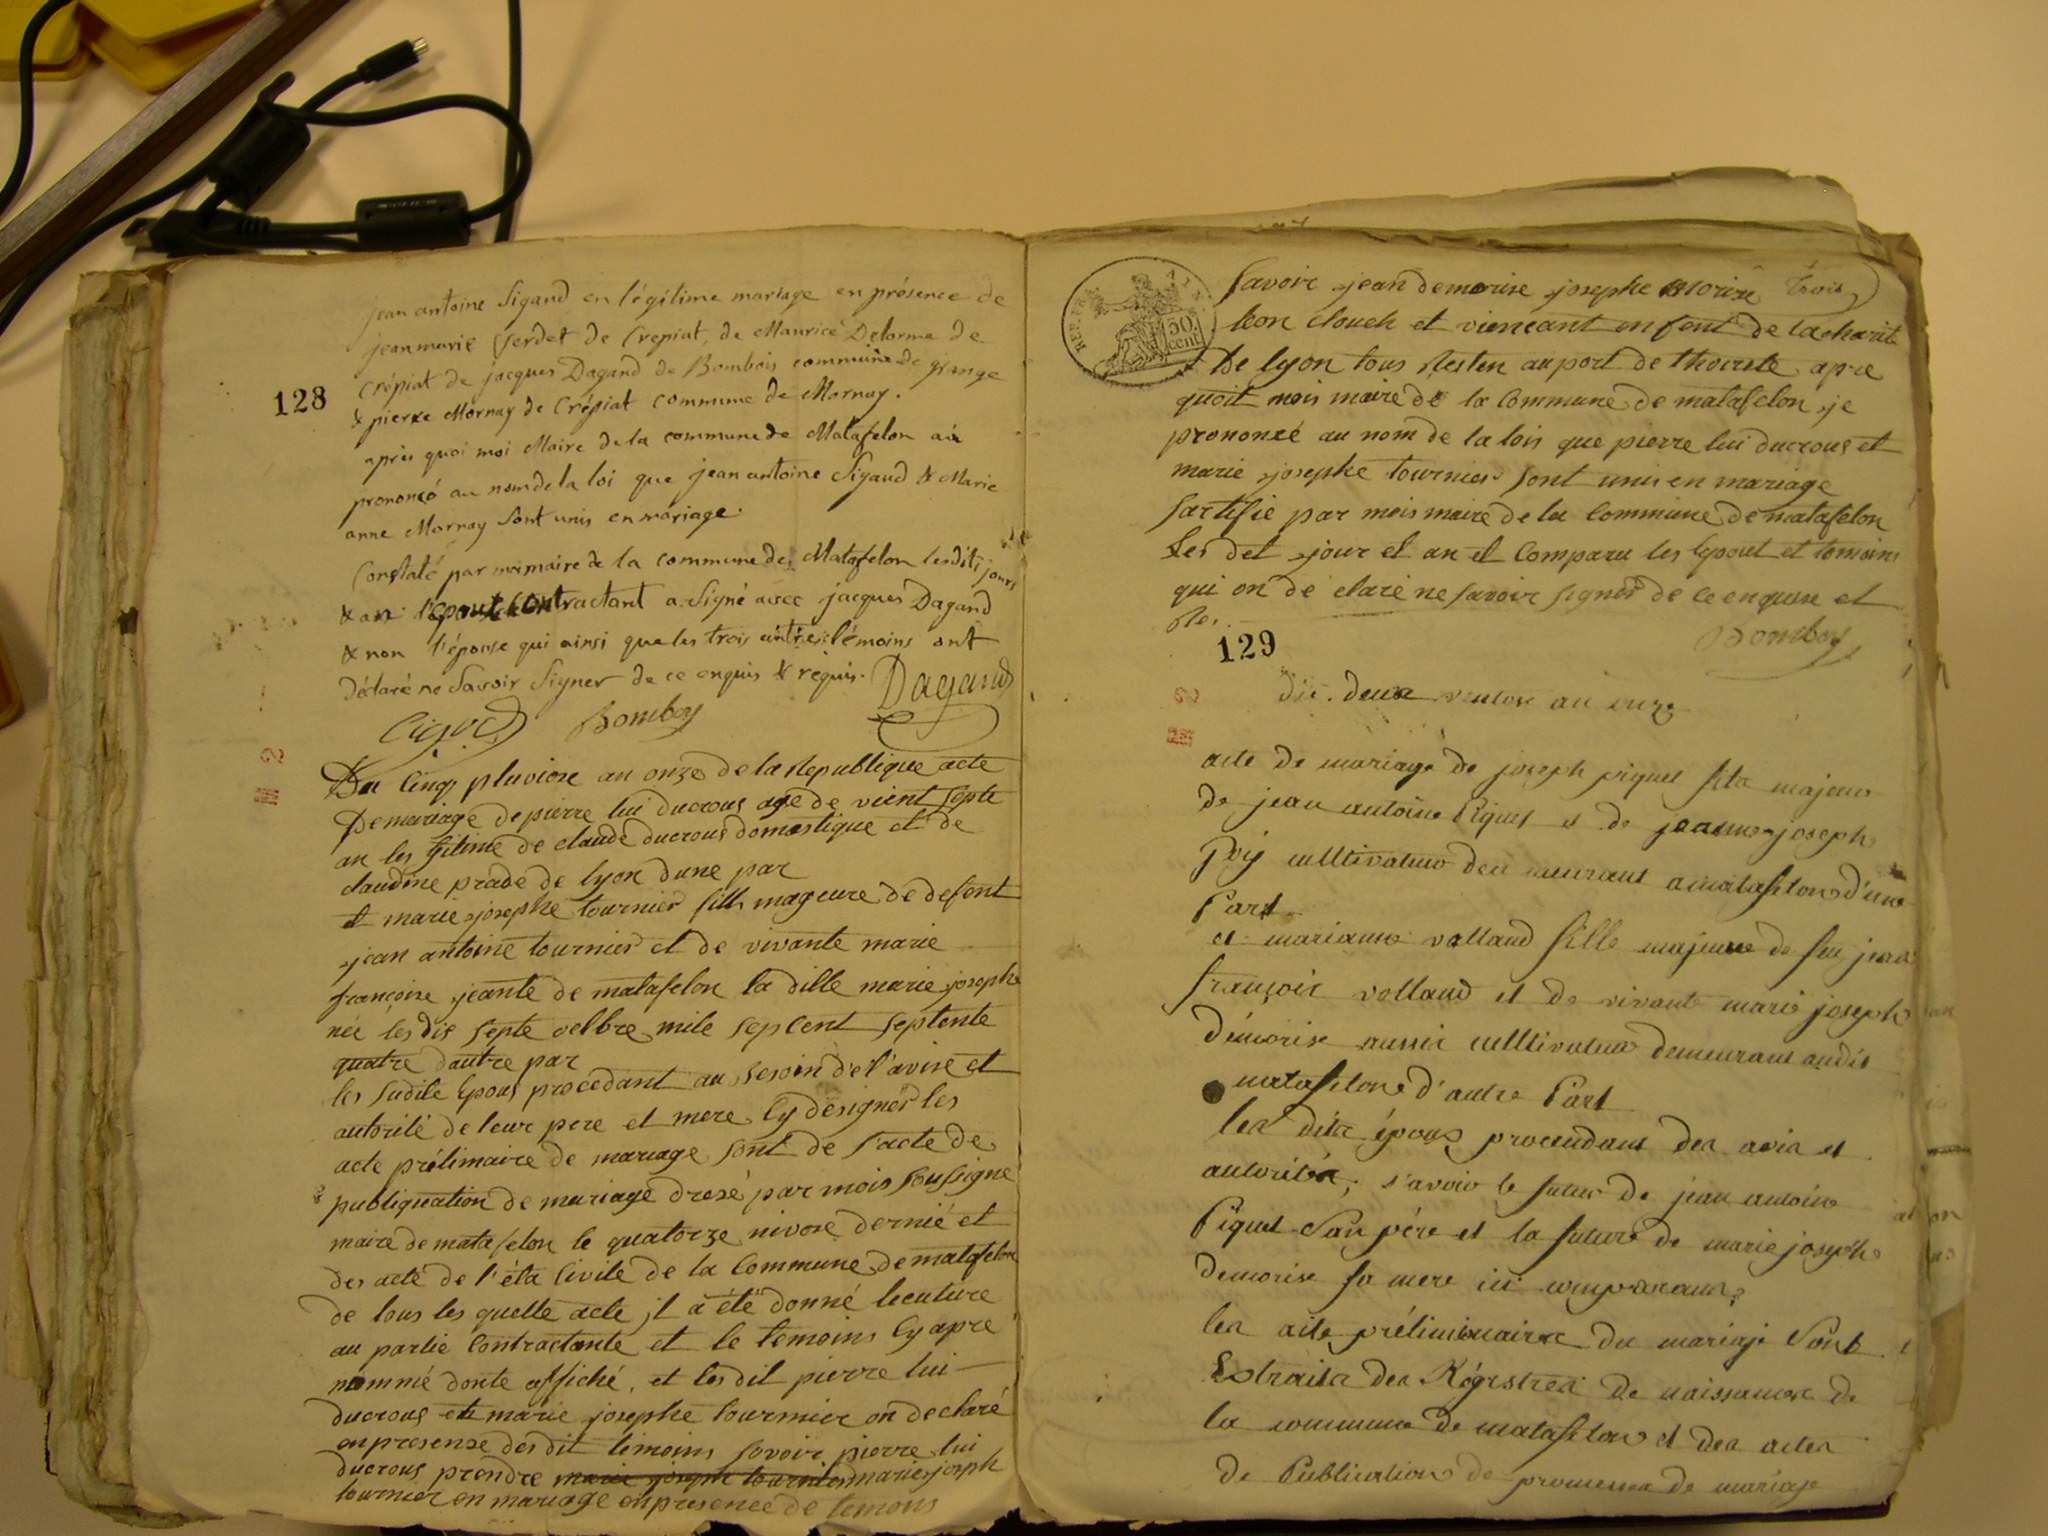 jean antoine Sigaud en légitime mariage en présence de
jean marie Verdet de Crepiat, de Maurice Delorme de
Crépiat de jacques Dagand de Bombois commune de grange
128
& pierre Mornay de Crépiat commune de Mornay.
après quoi moi Maire de la commune de Matafelon ai
prononcé au nom de la loi que jean antoine Sigaud & Marie
anne Mornay sont unis en mariage.
Constaté par moi maire de la commune de Matafelon lesdits jours
& an l'epout contractant a signé avec jacques Dagand
& non l'épouse qui ainsi que les trois autres témoins ont
Déclaré ne Savoir Signer de ce enquis & requis. Dagand
Bomboy
Du Cinq pluviose an onze de la Republique acte
De mariage de pierre lui ducrous age de vient septe
an les gitime de claude ducrous domestique et de
claudine prade de lyon dune par
et marie josephe tournier fille mageure de defont
jean antoine tournier et de vivante marie
françoise jeante de matafelon la ditte marie josephe
née les dis septe mile sepcent septente
quatre dautre par
les sudite Epous procedant au de l'avire et
autorité de leur pere et mere Cy désigner les
acte prélimaire de mariage sont de l'acte de
publiquation de mariage dresé par mois soussigne
maire de matafelon le quatorze nivose dernié et
des acte de l'éta Civile de la Commune de matafelon
de tous les quelle acte il a été donné lecuture
au partie Contractante et le temoins Cy apre
nommé donte affiché, et les dit pierre lui
ducrous et marie josephe tournier on declaré
en presense des dit temoins savoir pierre lui
ducrous prendre marie joseph tournier marie joseph
tournier en mariage en presence de temoins
REP. FRA.
50
cent
savoir jean demorise josephe morise
leon clouch et vienceant en fent de la charité
De lyon tous Resten au port de thoirete apre
quoit mois maire de la Commune de matafelon je
prononxé au nom de la lois que pierre lui ducrous et
marie josephe tournier sont unis en mariage
sartifié par mois maire de la Commune de matafelon
Les det jour et an et Comparu les Epout et temoins
qui on de claré ne savoir signer de ce enquise et
Res.
Bomboy
129
dix deux ventose an onze
acte de mariage de joseph piquet fils majeur
de jean antoine Piquet et de jeanne joseph
cultivateur demeurant a matafelon d'une
Part
et marianne volland fille majeure de feu jean
françois volland et de vivante marie joseph
démorise aussi cultivateur demeurant audit
matafelon d'autre Part
les dits époux procendant des avis et
autorités, s'avoir le futur de jean antoine
Piquet Son père et la future de marie joseph
demorise sa mere ici comparans
les acte préliminaire du mariaje Sont
Extraits des Régistres de naissance de
la commune de matafelon et des actes
de Publication de promesses de mariage